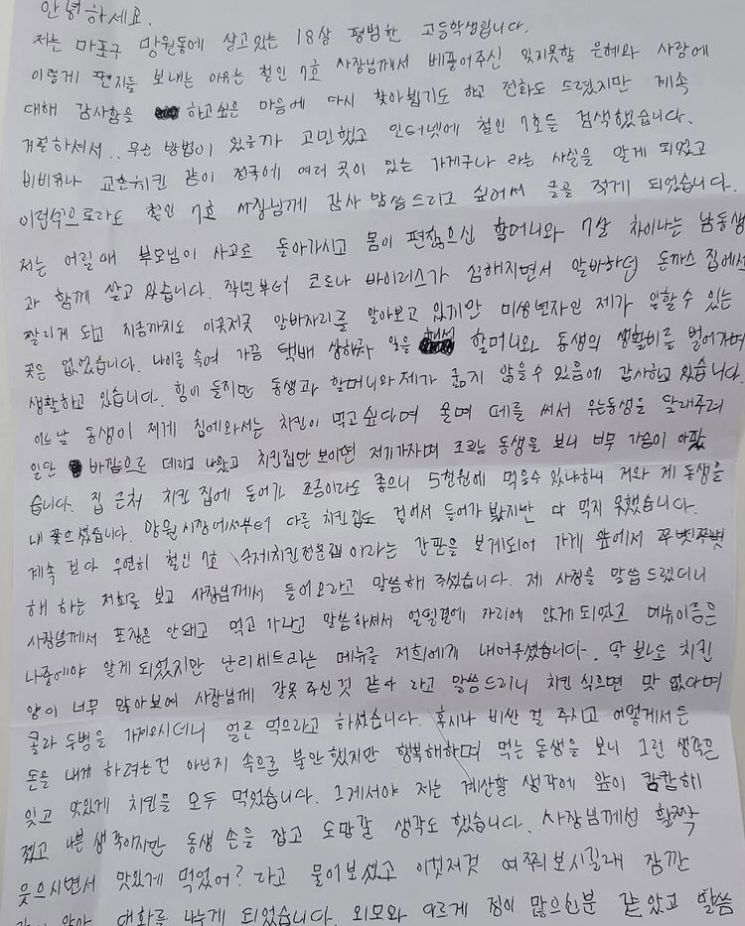 안녕하세요.
저는 마포구 망원동에 살고있는 18살 평범한 고등학생입니다.
이렇게 편지를 보내는 이유는 철인 7호 사장님께서 베풀어주신 잊지못할 은혜와 사랑에
대해 감사함을 하고싶은 마음에 다시 찾아뵙기도 하고 전화도 드렸지만 계속
거절하셔서.. 무슨 방법이 있을까 고민했고 인터넷에 철인 7호를 검색했습니다.
비비큐나 교촌치킨 같이 전국에 여러 곳이 있는 가게구나 라는 사실을 알게 되었고
이런식으로라도 철인 7호 사장님께 감사 말씀드리고 싶어서 글을 적게 되었습니다.
저는 어릴때 부모님이 사고로 돌아가시고 몸이 편찮으신 할머니와 7살 차이나는 남동생
과 함께 살고 있습니다. 작년부터 코로나 바이러스가 심해지면서 알바하던 돈까스 집에서
짤리게 되고 지금까지도 이곳저곳 알바자리를 알아보고 있지만 미성년자인 제가 일할수 있는
곳은 없었습니다. 나이를 속여 가끔 택배 상하차 일을 할머니와 동생의 생활비를 벌어가며
생활하고 있습니다. 힘이 들지만 동생과 할머니와 제가 굶지 않을수 있음에 감사하고 있습니다.
어느날 동생이 제게 집에와서는 치킨이 먹고싶다며 울며 떼를 써서 우는동생을 달래주려
일단 바깥으로 데리고 나왔고 치킨집만 보이면 저기가자며 조르는 동생을 보니 너무 가슴이 아팠
습니다. 집 근처 치킨 집에 들어가 조금이라도 좋으니 5천원에 먹을수 있냐하니 저와 제 동생을
내쫓으셨습니다. 망원시장에서부터 다른 치킨집도 걸어서 들어가 봤지만 다 먹지 못했습니다.
계속 걷다 우연히 철인 7호 수제치킨전문점이라는 간판을 보게되어 가게 앞에서 쭈뼛쭈뼛
해 하는 저희를 보고 사장님께서 들어오라고 말씀해 주셨습니다. 제 사정을 말씀 드렸더니
사장님께서 포장은 안돼고 먹고가라고 말씀하셔서 얼떨결에 자리에 앉게되었고 메뉴이름은
나중에야 알게 되었지만 난리세트라는 메뉴를 저희에게 내어주셨습니다. 딱 봐도 치킨
양이 너무 많아보여 사장님께 잘못 주신것 같다 라고 말씀드리니 치킨 식으면 맛 없다며
콜라 두병을 가져오시더니 얼른 먹으라고 하셨습니다. 혹시나 비싼 걸 주시고 어떻게서든
돈을 내게 하려는건 아닌지 속으로 불안했지만 행복해하며 먹는 동생을 보니 그런 생각은
잊고 맛있게 치킨을 모두 먹었습니다. 그제서야 저는 계산할 생각에 앞이 캄캄해
졌고 나쁜생각이지만 동생 손을 잡고 도망갈 생각도 했습니다. 사장님께선 활짝
웃으시면서 맛있게 먹었어? 라고 물어보셨고 이것저것 여쭤보시길래 잠깐
앉아 대화를 나누게 되었습니다. 외모와 다르게 정이 많으신분 같았고 말씀